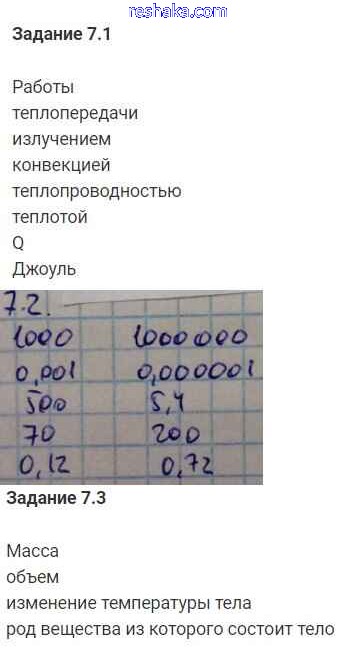 reshaka.com
Задание 7.1
Работы
теплопередачи
излучением
конвекцией
теплопроводностью
теплотой
Q
Джоуль
7.2.
1000 1000 000
0,001 0,000001
500 5,4
70 200
0,12 0,72
Задание 7.3
Масса
объем
изменение температуры тела
род вещества из которого состоит тело